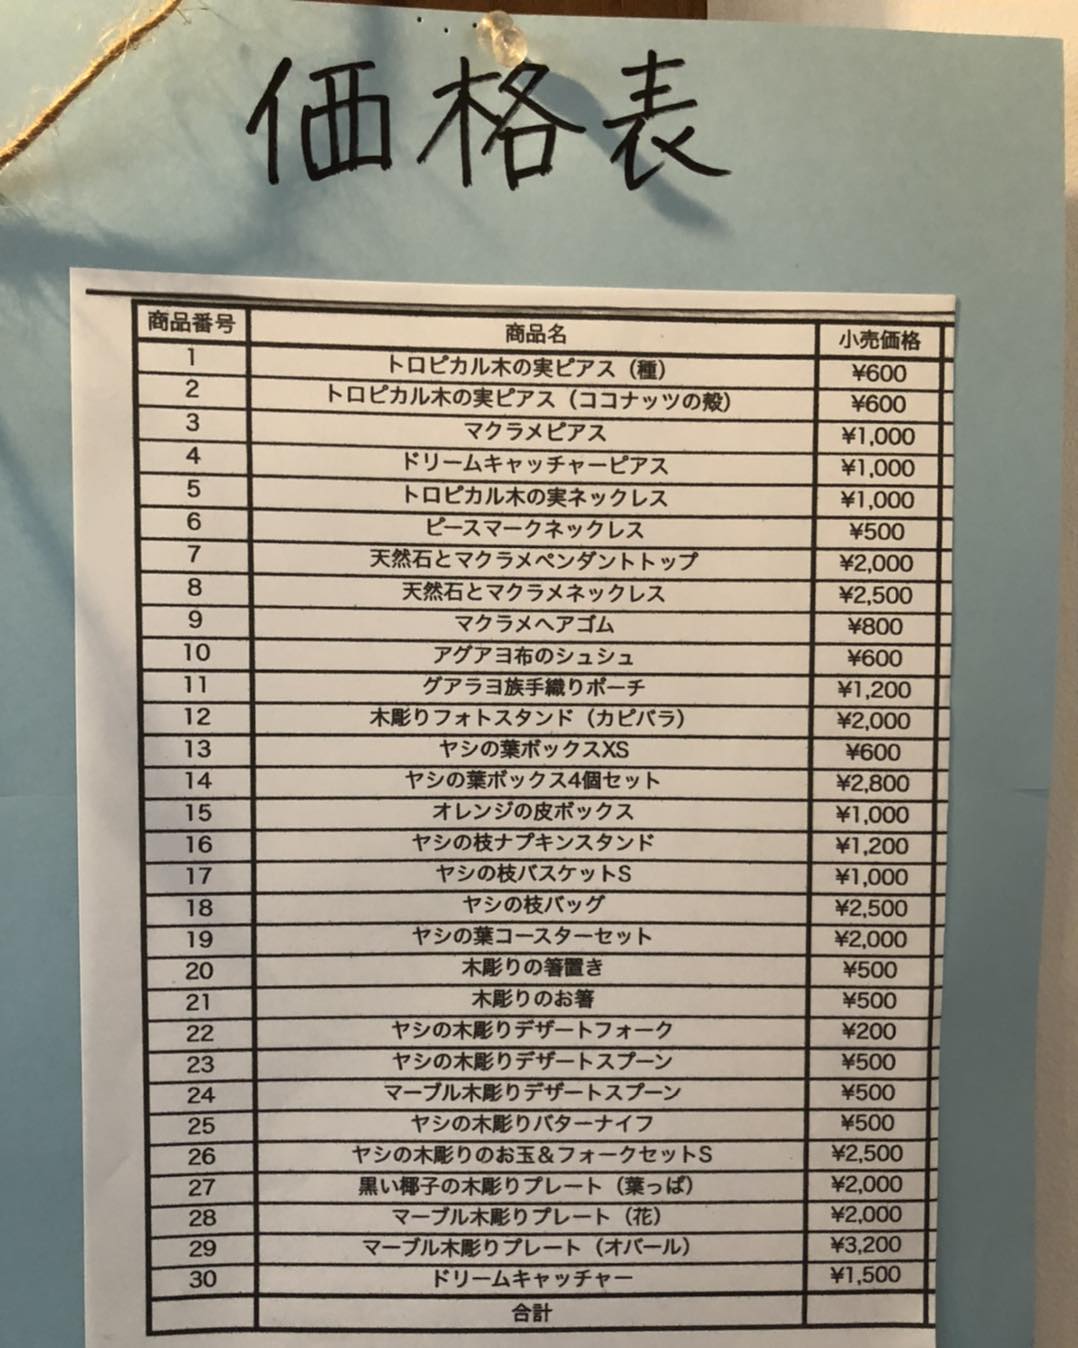 価格表
商品番号 商品名 小売価格
1 トロピカル木の実ピアス（種） ¥600
2 トロピカル木の実ピアス（ココナッツの殻） ¥600
3 マクラメピアス ¥1,000
4 ドリームキャッチャーピアス ¥1,000
5 トロピカル木の実ネックレス ¥1,000
6 ピースマークネックレス ¥500
7 天然石とマクラメペンダントトップ ¥2,000
8 天然石とマクラメネックレス ¥2,500
9 マクラメヘアゴム ¥800
10 アグアヨ布のシュシュ ¥600
11 グアラヨ族手織りポーチ ¥1,200
12 木彫りフォトスタンド（カピバラ） ¥2,000
13 ヤシの葉ボックスXS ¥600
14 ヤシの葉ボックス4個セット ¥2,800
15 オレンジの皮ボックス ¥1,000
16 ヤシの枝ナプキンスタンド ¥1,200
17 ヤシの枝バスケットS ¥1,000
18 ヤシの枝バッグ ¥2,500
19 ヤシの葉コースターセット ¥2,000
20 木彫りの箸置き ¥500
21 木彫りのお箸 ¥500
22 ヤシの木彫りデザートフォーク ¥200
23 ヤシの木彫りデザートスプーン ¥500
24 マーブル木彫りデザートスプーン ¥500
25 ヤシの木彫りバターナイフ ¥500
26 ヤシの木彫りのお玉＆フォークセットS ¥2,500
27 黒い椰子の木彫りプレート（葉っぱ） ¥2,000
28 マーブル木彫りプレート（花） ¥2,000
29 マーブル木彫りプレート（オバール） ¥3,200
30 ドリームキャッチャー ¥1,500
合計